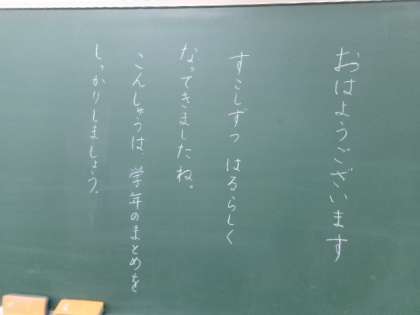 おはようございます
すこしずつ はるらしく
なってきましたね。
こんしゅうは 学年のまとめを
しっかりしましょう。